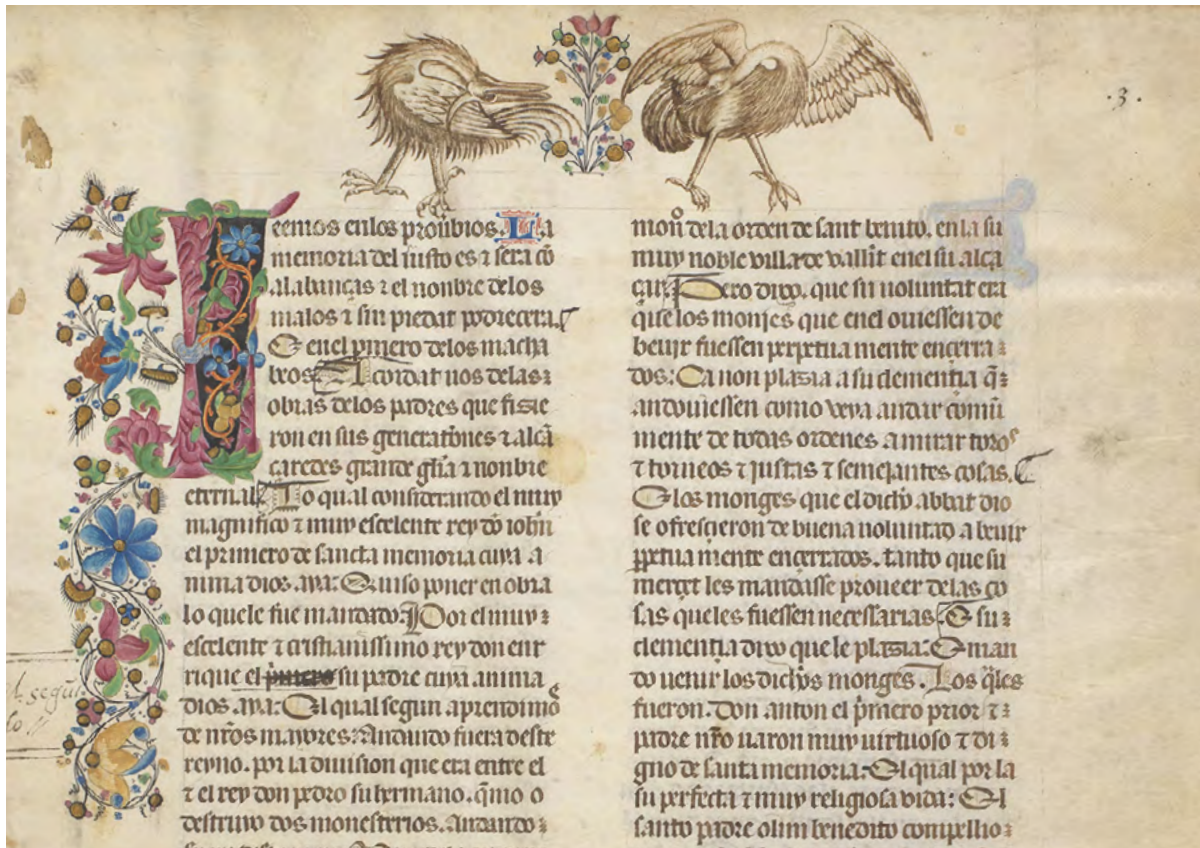 ·3·
Leemos en los prouͥbios. La
memoria del iusto es ⁊ sera cō
alabanças ⁊ el nonbre de los
malos ⁊ sin piedat podrecera.
E en el pͥmero delos macha
beos. Acordat nos de las
obras delos padres que fizie
ron en sus generatiōnes ⁊ alcā
çaredes grande glīa ⁊ nonbre
eternal. Lo qual considerando el muy
magnifico ⁊ muy escelente rey dō iohñ
el primero de sancta memoria cuya a
nima dios. aya: Quiso poner en obra
lo quele fue mandado. Por el muy
escelente ⁊ cristianissimo rey don enr
rique el pͥmero su padre cuya anima
dios. aya: El qual segun aprendimoˢ
de nr̄os mayores: Andando fuera deste
reyno. por la diuision que era entre el
⁊ el rey don pedro su hermano. q̄mo o
destruyo dos monesterios. Andando
el segun
do //
moñ dela orden de sant benito. en la su
muy noble villa de vallīt en el su alca
çar. Pero dixo. que su uoluntat era
q̄ los monjes que enel ouiessen de
beuir fuessen perpetua mente ençerra
dos: Ca non plazia a su clementia q̄
andouiessen como veya andar comū
mente de todas ordenes. a mirar toroˢ
⁊ torneos ⁊ justas ⁊ semejantes cosas.
E los monges que el dicho abbat dio
se ofresçieron de buena uoluntad a beuir
ꝑpetua mente ençerrados. tanto que su
merçet les mandasse proueer delas co
sas queles fuessen necessarias. E su
clementia dixo que le plazia: E man
do uenir los dichos monges. Los q̄les
fueron. Don anton el pͥmero prior ⁊
padre nr̄o uaron muy uirtuoso ⁊ di
gno de santa memoria. El qual por la
su perfecta ⁊ muy religiosa vida: El
santo padre olim benedito conpellio